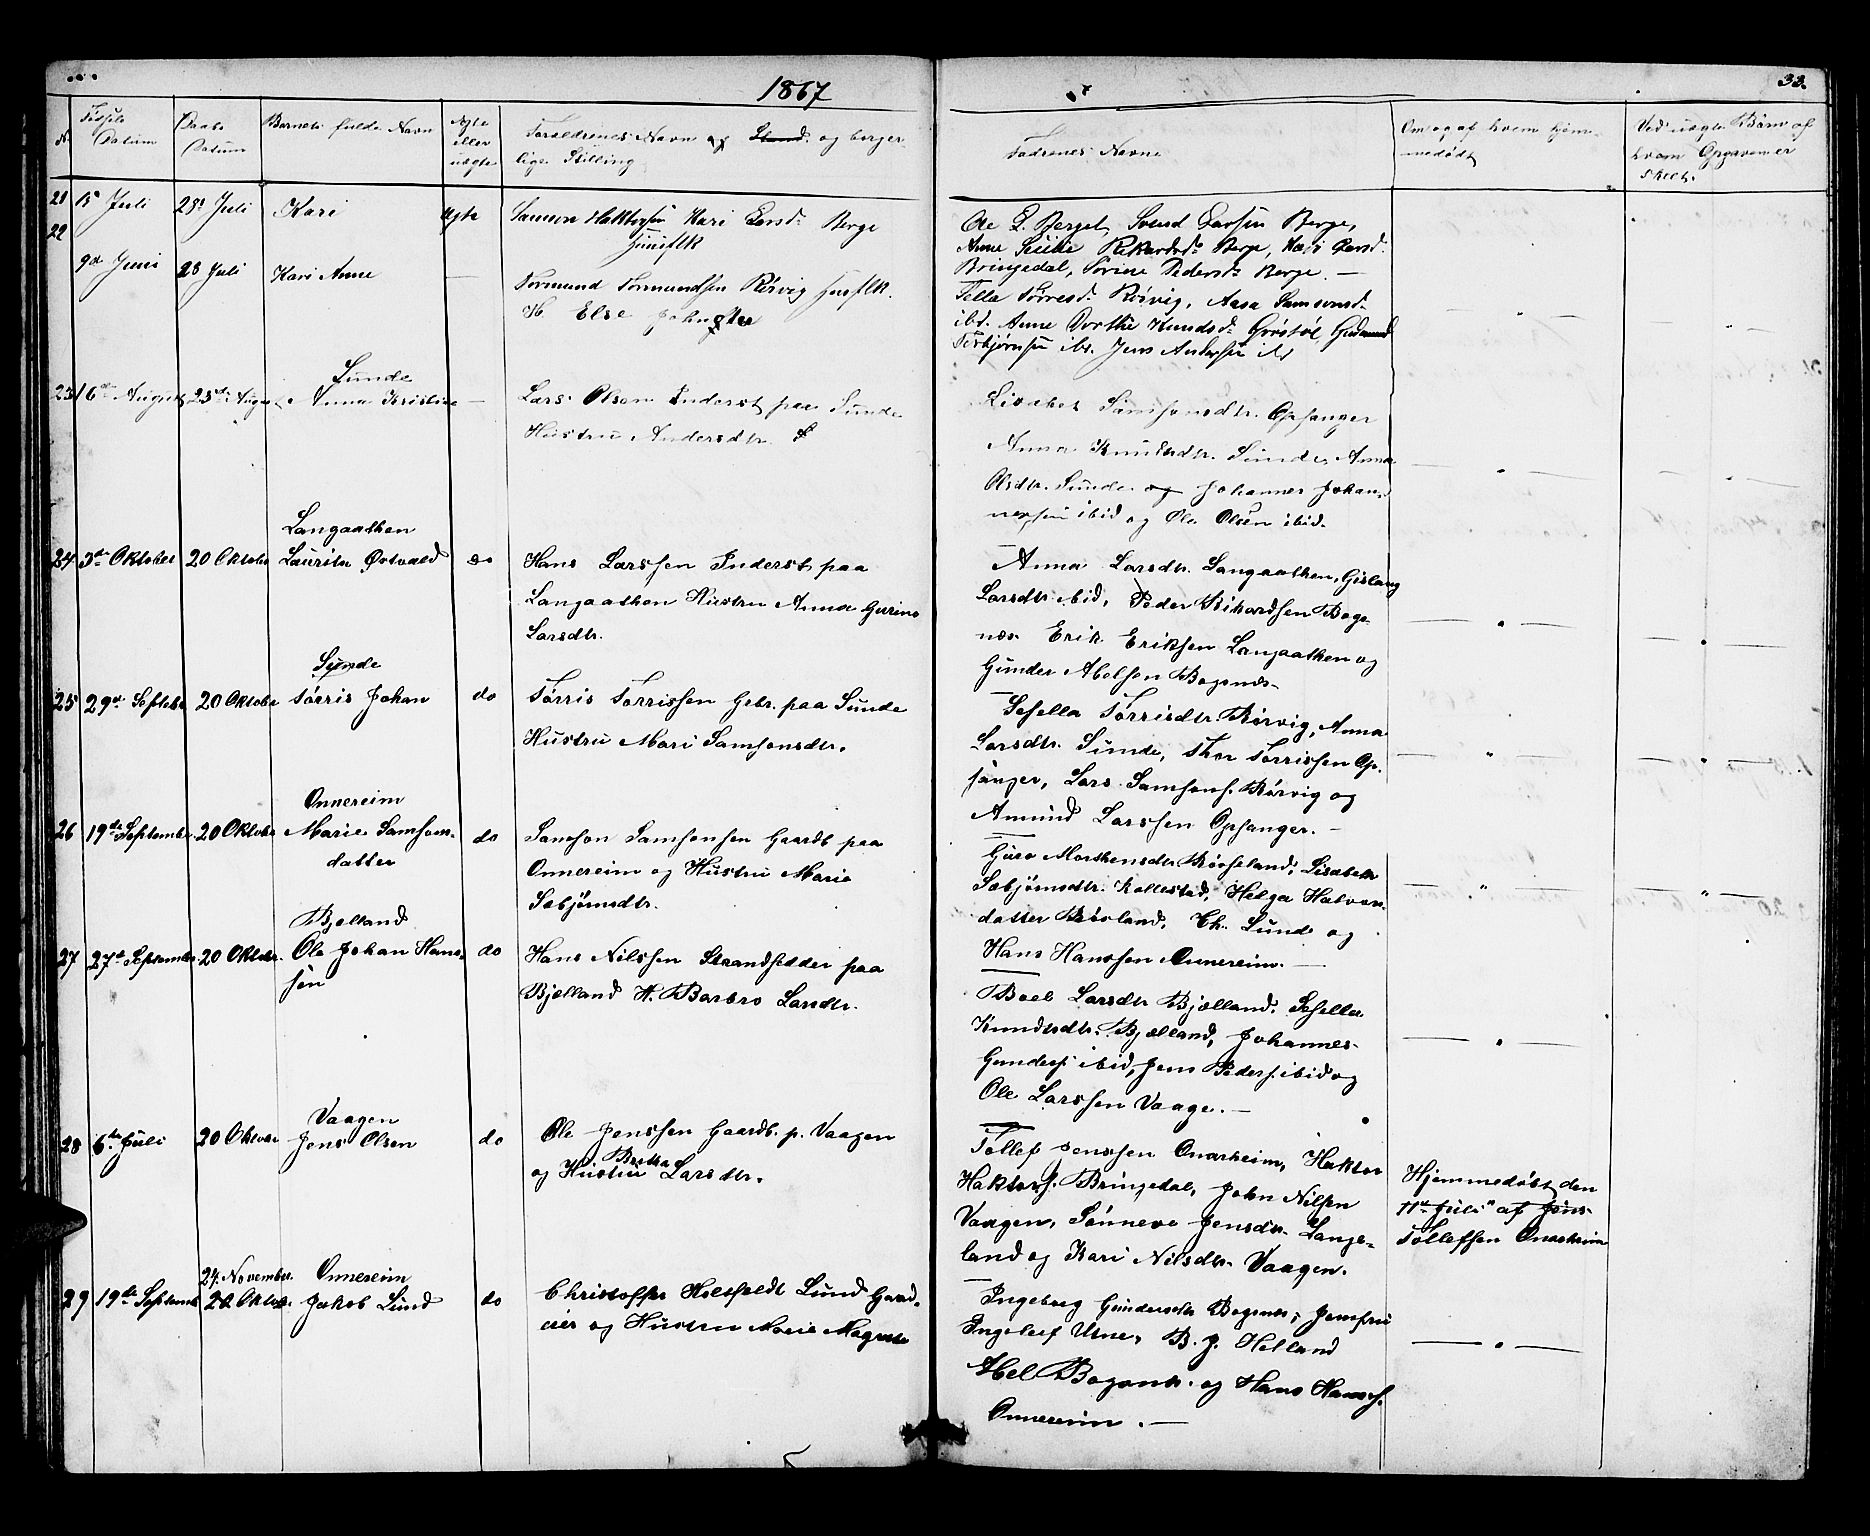 1867
33.
N. Fødsels Datum
Daabs Datum
Barnets fulde Navn
Ægte eller uægte
Forældrenes Navn og Stand og borger
lige Stilling
Fadrenes Navne
Om og af hvem hjem-
medøbt
Ved uægte Børn af
hvem Opgaven er
skeet.
21 15 Juli 28 Juli Kari Ægte Samson Haktorsen Kari Larsd. Berge
Huusflk
Ole L. Berget, Svend Larsen Berge,
Anne Rikardsd. Berge, Kari Larsd.
Bringedal, Sørine Pedersd. Berge. —
22 9de Juni 28 Juli Kari Anne — Tormund Tormundsen Rörvig Husflk.
H. Else Johnsdtr
Tella Tørresd. Rörvig, Aasa Samsonsd.
ibd. Anne Dorthe Knudsd. Gudmund
Torbjørnsen ibd. Jens Andersen ibd
Sunde
23 16de August 25de August Anna Kristine — Lars Olsen Inderst paa Sunde
Hustru Andersdtr.
Lisabet Samsonsdtr. Opsanger
Anna Knutsdtr. Sunde Anna
Olsdtr. Sunde og Johannes Johan-
nessen ibid og Ole Olsen ibid.
Langaathen
24 3de Oktober 20 Oktober Laurits Østvald do Hans Larssen Inderst paa
Langaathen Hustru Anna Gurine
Larsdtr.
Anna Larsdtr. Langaathen, Gislaug
Larsdtr. ibid, Peder Rikardsen Boge-
næs Erik Eriksen Langaathen og
Gunder Abelsen Bogenæs
Sunde
25 29de Septebr 20 Oktobr Tørris Johan do Tørris Tørrissen Gbr. paa Sunde
Hustru Mari Samsonsdtr.
Sesella Tørrisdtr. Rörvig, Anna
Larsdtr. Sunde, Thor Tørrissen Op-
sanger, Lars Samsons. Rörvig og
Amund Larssen Opsanger. —
Onnereim
26 19de September 20 Oktobr Marie Samsons-
datter
do Samson Samsonsen Gaardb. paa
Onnereim og Hustru Marie
Sæbjörnsdtr.
Guro Morthensdtr. Røsseland, Lisabeth
Sæbjörnsdtr. Kollestad, Helga Halvors-
datter Røvland, Ch. Lund og
Hans Hanssen Onnereim. —
Bjelland
27 27de September 20 Oktobr. Ole Johan Hans-
sen
do Hans Nilssen Strandsidder paa
Bjælland H. Barbro Larsdtr.
Boel Larsdtr Bjælland, Sesella
Knudsdtr. Bjælland, Johannes
Gunders. ibid, Jens Peders. ibid og
Ole Larssen Vaage. —
Vaagen
28 6te Juli 20 Oktober Jens Olsen do Ole Jenssen Gaardb. p. Vaagen
Britha
og Hustru Larsdtr.
Tollef Jenssen Onarheim, Haktor
Haktors. Bringedal, John Nilsen
Vaagen, Sönneve Jensdtr. Lange-
land og Kari Nilsdtr. Vaagen.
Hjemmedøbt den
11te Juli af Jens
Tollefsen Onarheim
24. November. Onnereim
29 19de September 20 Oktobr. Jakob Lund do Christoffer Holtfeldt Lund Gaard-
eier og Hustru Marie Magrete
Ingeborg Gundersdtr Bogenæs, Jomfru
Ingeleif Utne, B. J. Helland
Abel Bogenæs og Hans Hanss.
Onnereim. —